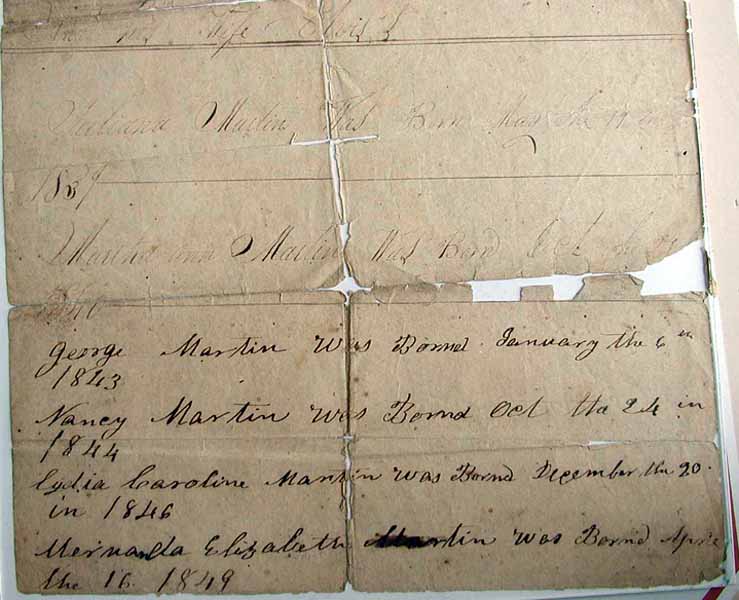 and his Wife
Juliana Martin Was Born May the 19 in
1839
Martha ann Martin Was Bornd Oct the
1840
George Martin Was Bornd January the 6 in
1843
Nancy Martin Was Bornd Oct the 24 in
1844
Lydia Caroline Martin was Bornd December the 20
in 1846
Mernada Elizabeth Martin was Bornd Apre
the 16 1849